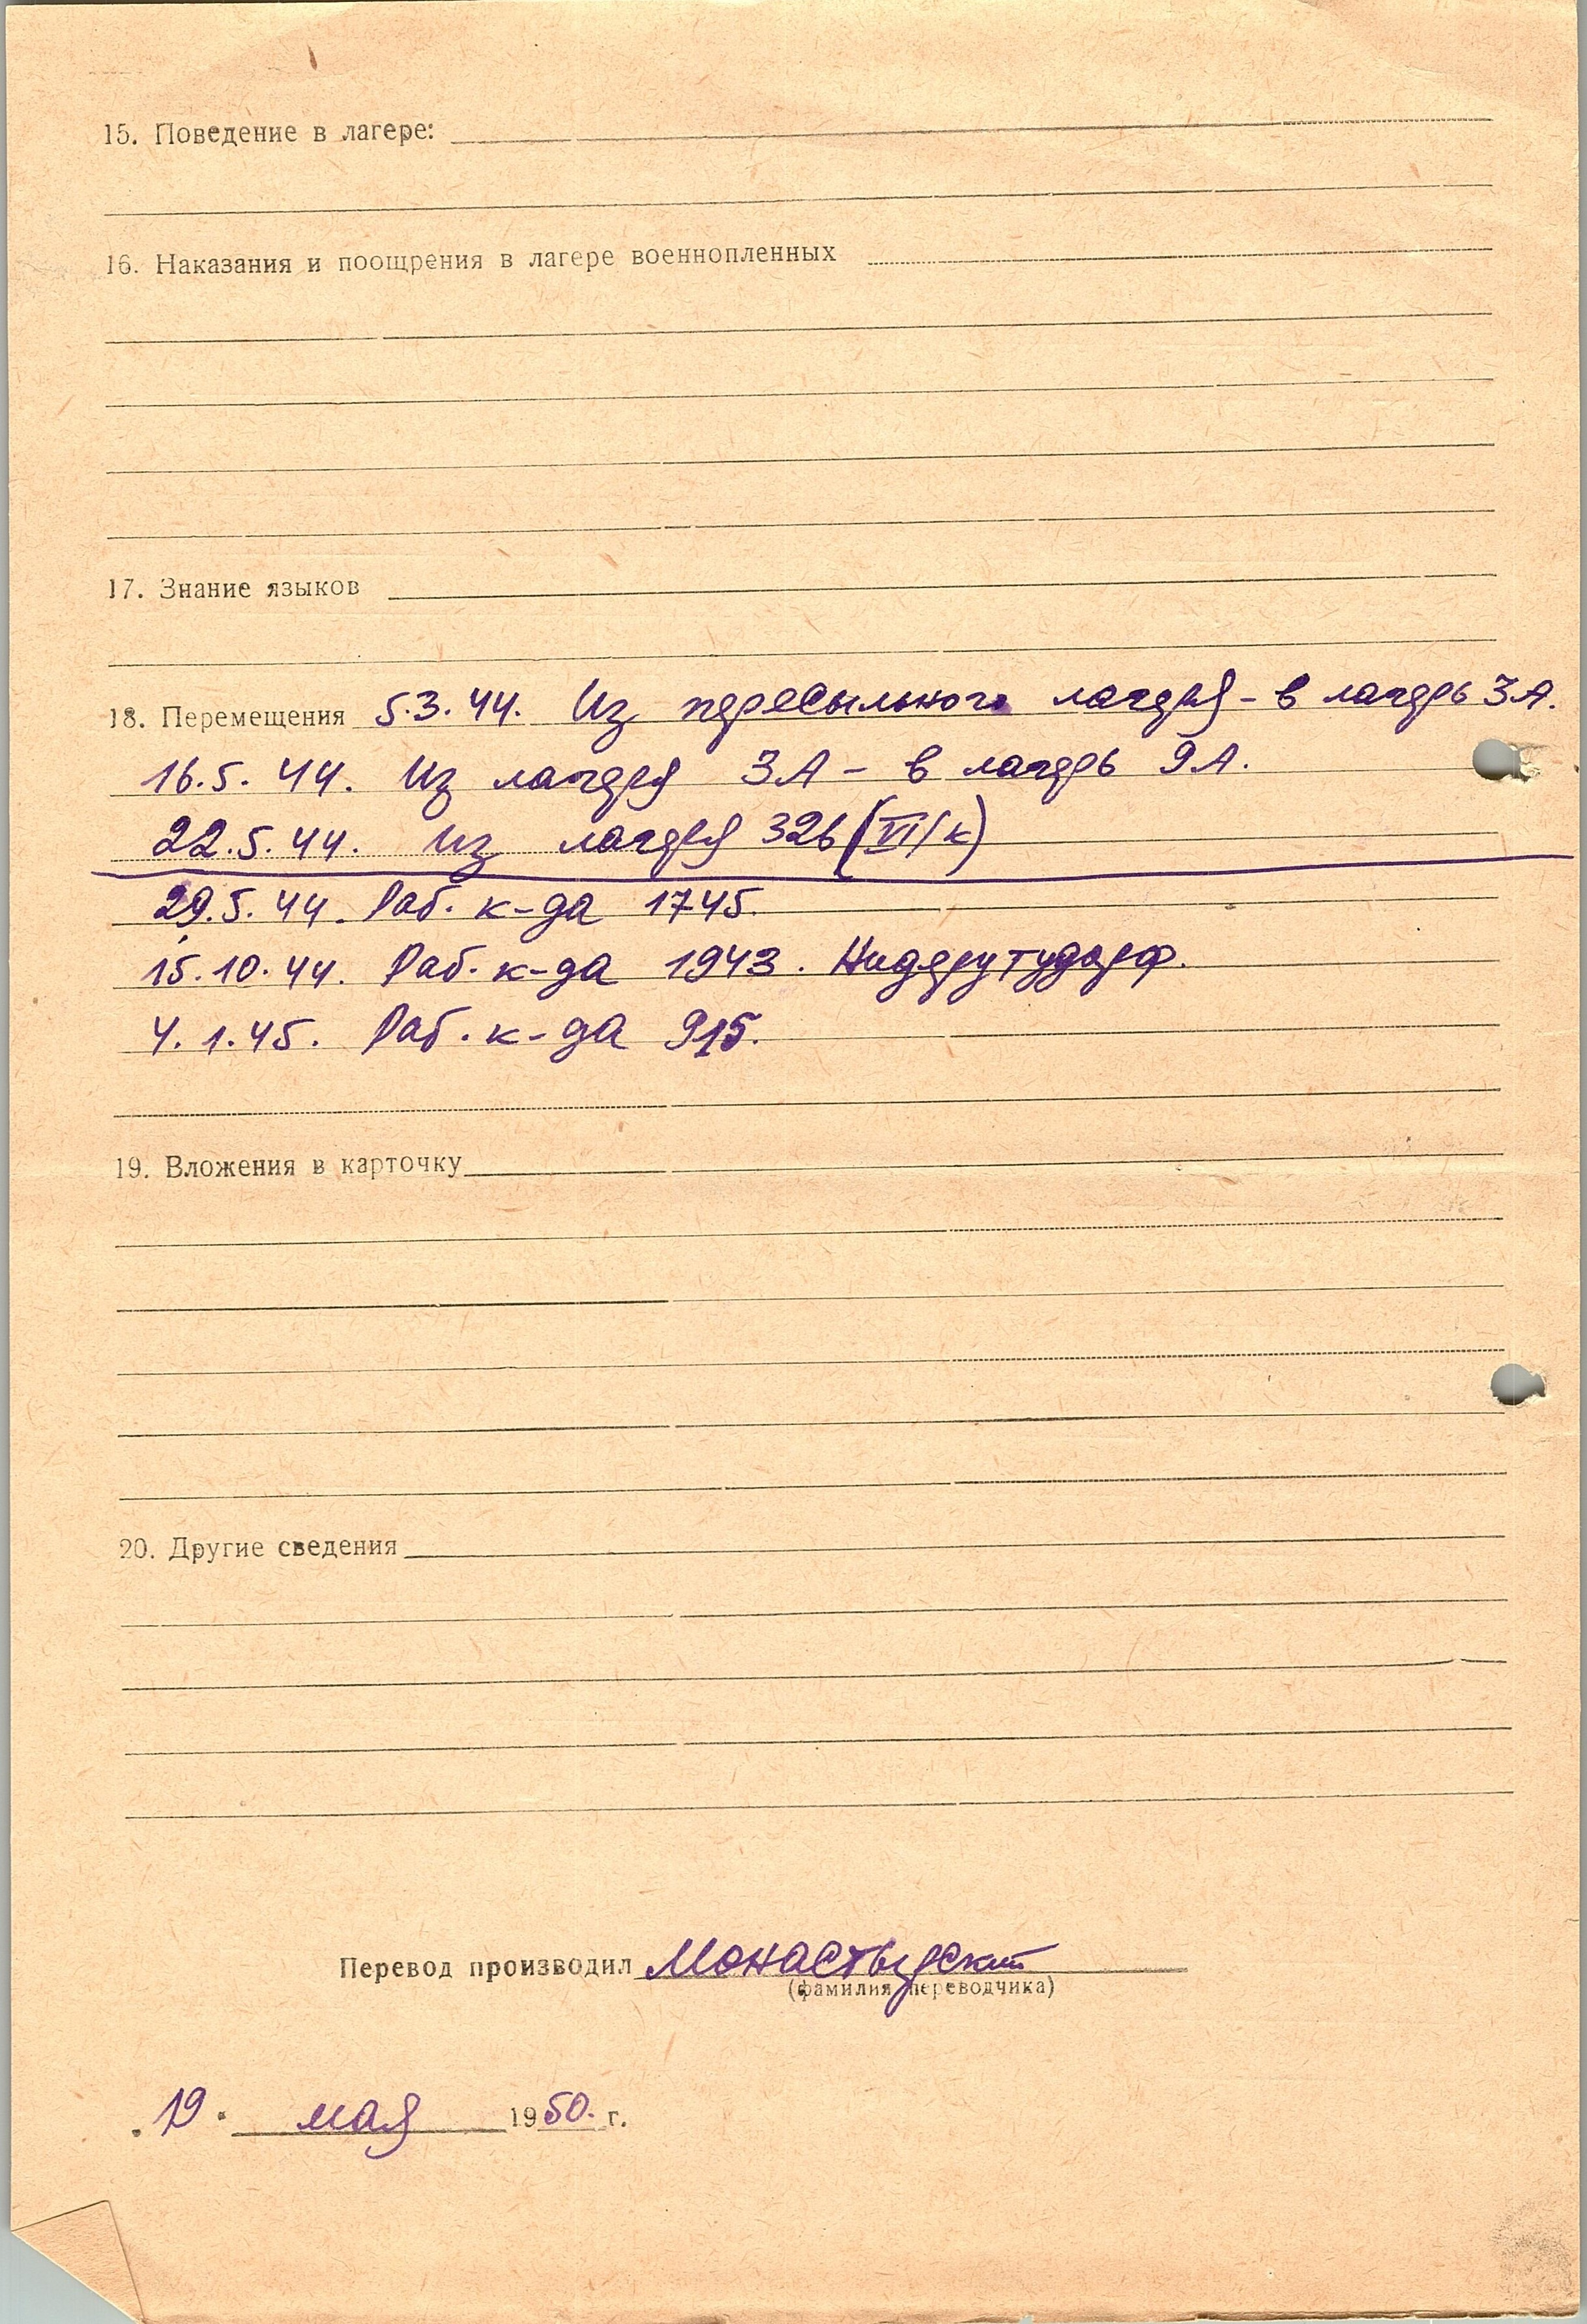 15. Поведение в лагере:
16. Наказания и поощрения в лагере военнопленных
17. Знание языков
18. Перемещения 5.3.44. Из пересыльного лагеря - в лагерь 3А.
16.5.44. Из лагеря 3А - в лагерь 9А.
22.5.44. Из лагеря 326 (VI/К)
29.5.44. Раб. к-да 1745.
15.10.44. Раб. к-да 1943. Нидерутудорф.
4.1.45. Раб. к-да 915.
19. Вложения в карточку
20. Другие сведения
Перевод производил Монастырский
(фамилия переводчика)
„19" мая 1950. г.